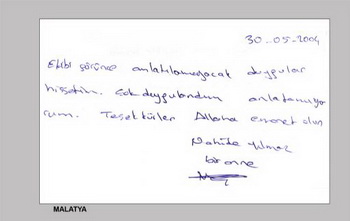 30.05.2004
Ekibi görünce anlatılamayacak duygular
hissettim. Çok duygulandım anlatamıyo
rum. Teşekkürler Allaha emanet olun
Nahide Yılmaz
bir anne
MALATYA